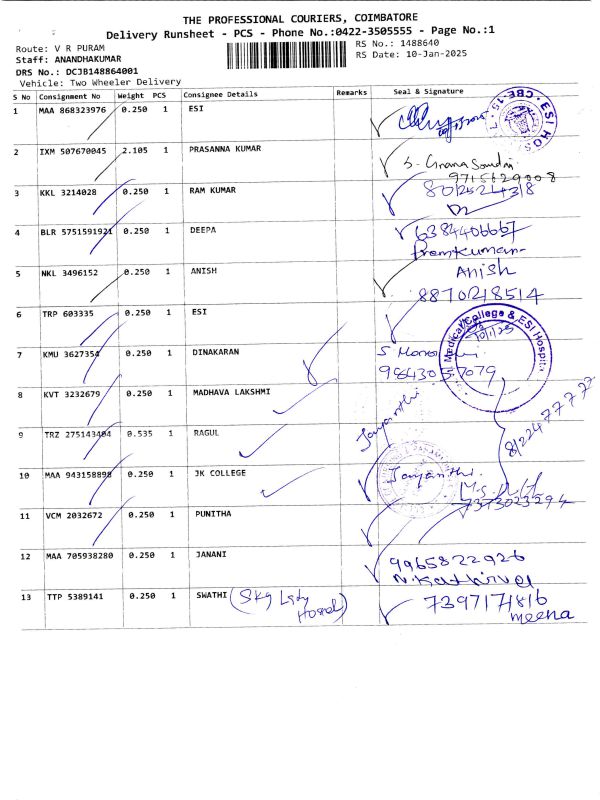 THE PROFESSIONAL COURIERS, COIMBATORE
Delivery Runsheet - PCS - Phone No.:0422-3505555 - Page No.:1
Route: V R PURAM
RS No.: 1488640
Staff: ANANDHAKUMAR
RS Date: 10-Jan-2025
DRS No.: DCJB148864001
Vehicle: Two Wheeler Delivery
S No Consignment No Weight PCS Consignee Details Remarks Seal & Signature
1 MAA 868323976 0.250 1 ESI
2 IXM 507670045 2.105 1 PRASANNA KUMAR
9715629008
3 KKL 3214028 0.250 1 RAM KUMAR 8012524318
4 BLR 5751591921 0.250 1 DEEPA 6384406667
Premkumar
5 NKL 3496152 0.250 1 ANISH Anish
8870218514
6 TRP 603335 0.250 1 ESI
Medical College & ESI Hospital
7 KMU 3627354 0.250 1 DINAKARAN
8 KVT 3232679 0.250 1 MADHAVA LAKSHMI Jayanthi
9 TRZ 275143404 0.535 1 RAGUL
10 MAA 943158898 0.250 1 JK COLLEGE Jayanthi.
7373023294
11 VCM 2032672 0.250 1 PUNITHA
12 MAA 705938280 0.250 1 JANANI 9965822926
N.Kathirvel
13 TTP 5389141 0.250 1 SWATHI (SKG Lady Hostel) 7397171816
meena